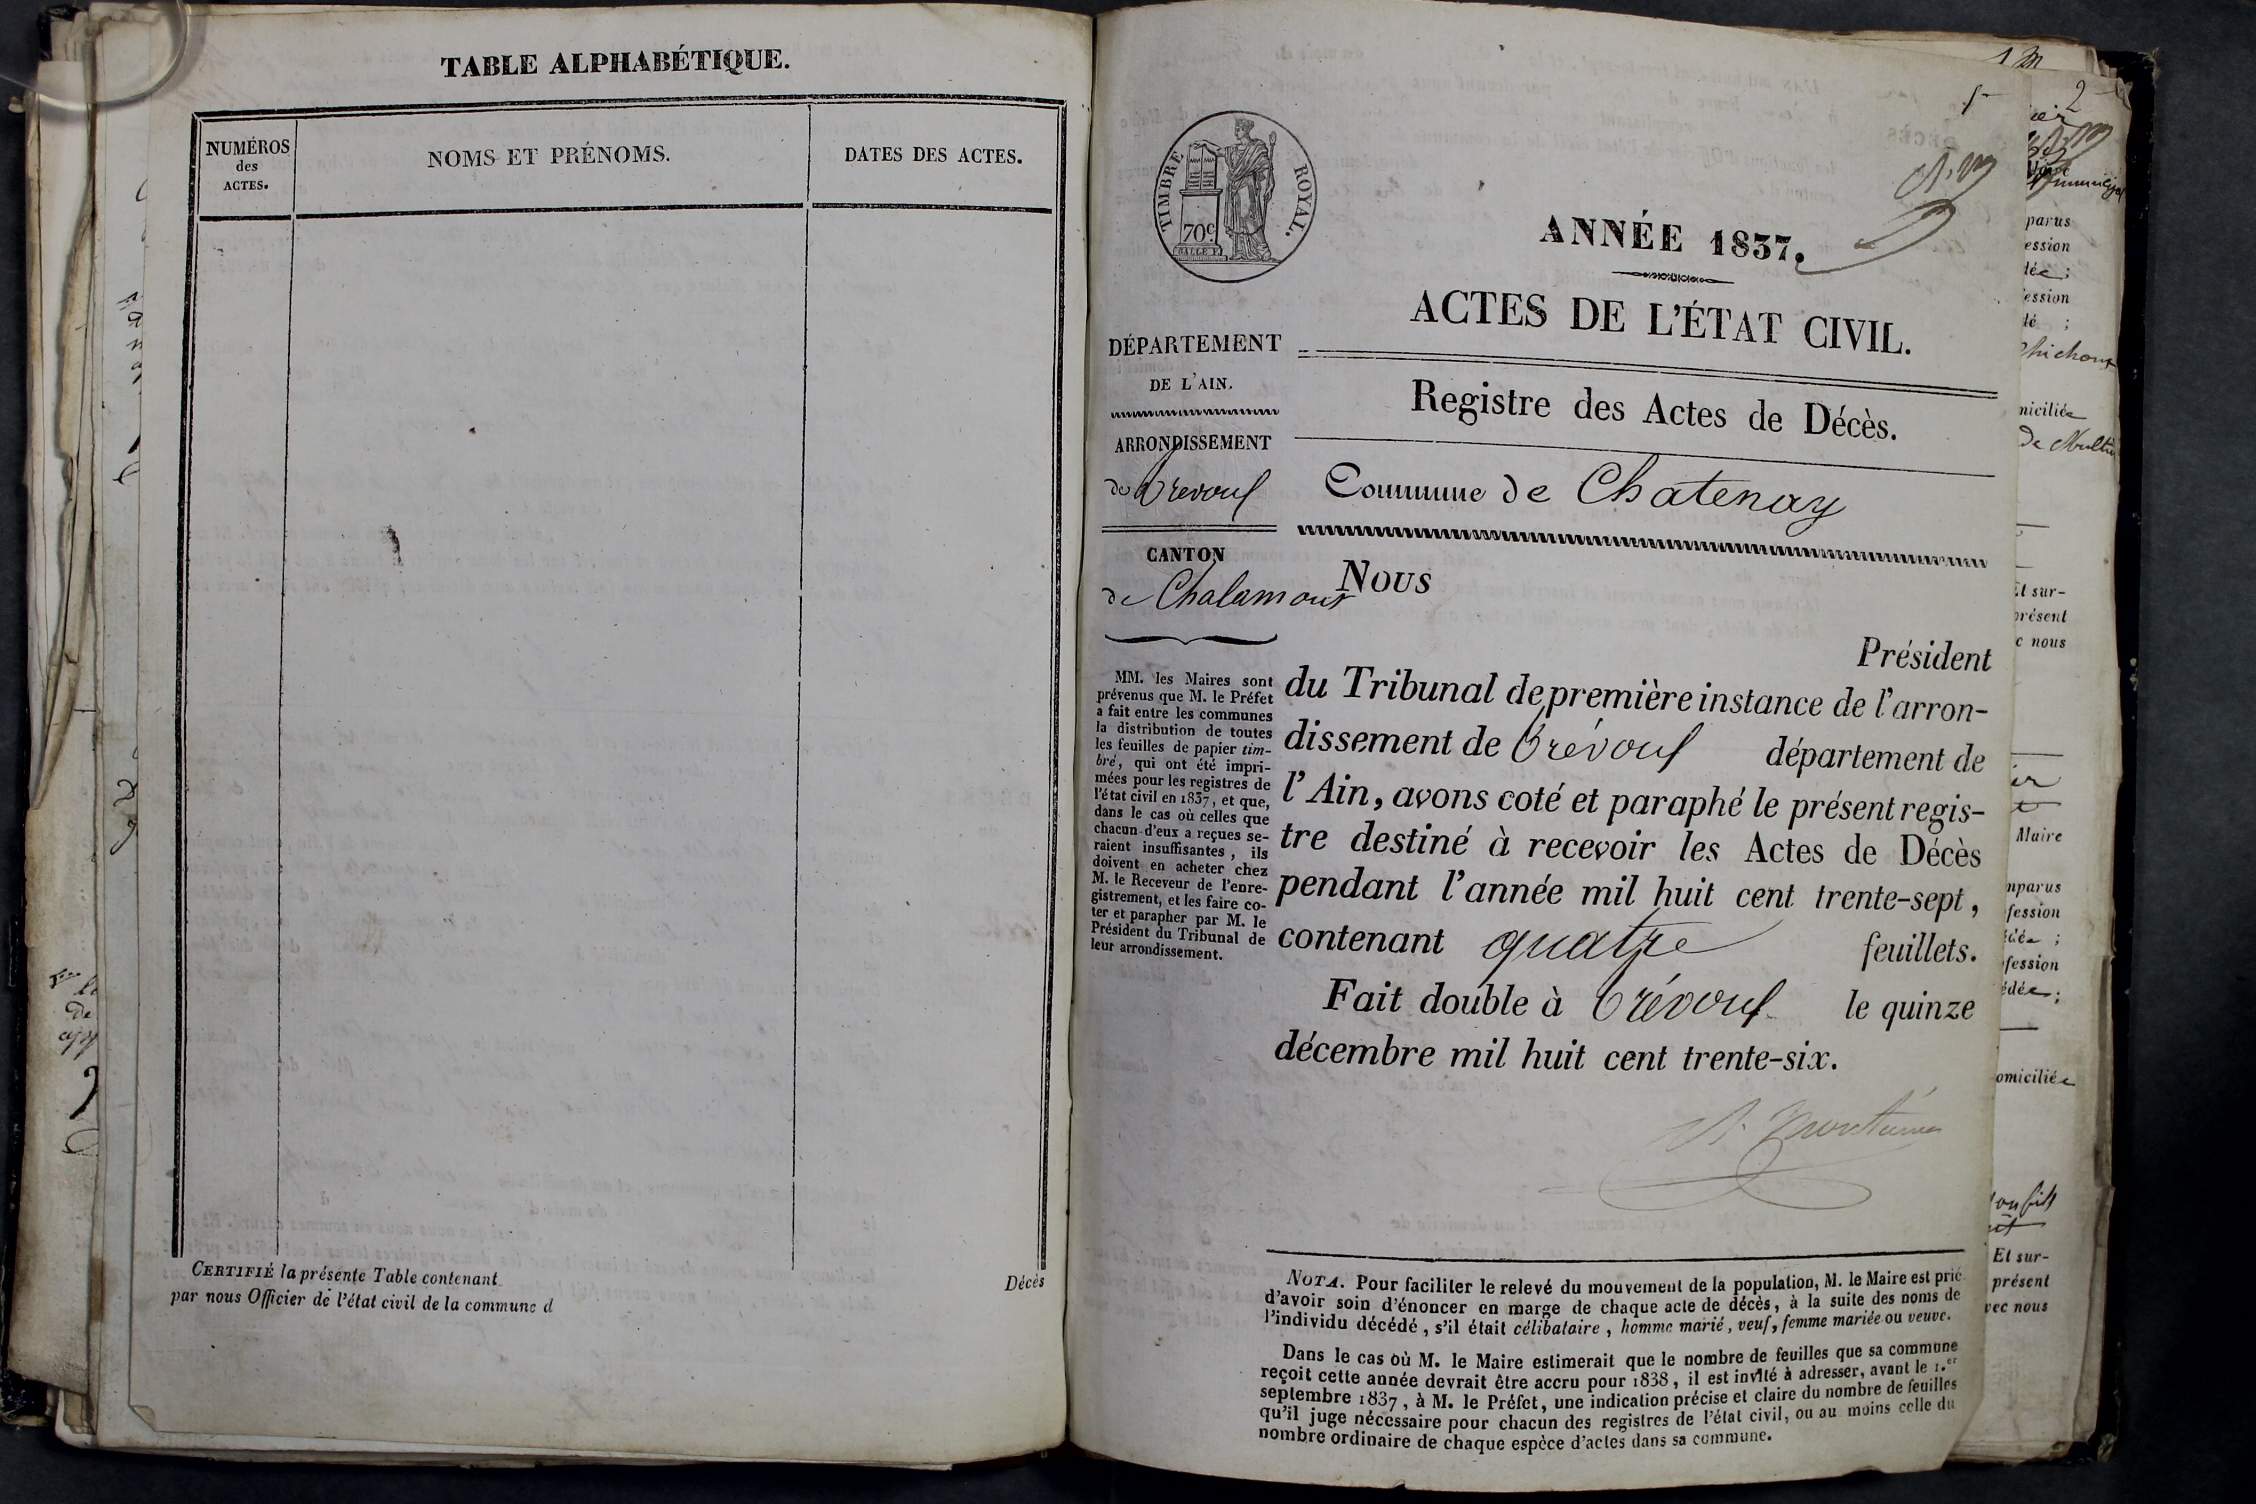 TABLE ALPHABÉTIQUE.
NUMÉROS
des
ACTES.
NOMS ET PRÉNOMS.
DATES DES ACTES.
CERTIFIÉ la présente Table contenant
Décès
par nous Officier de l'état civil de la commune d
TIMBRE ROYAL.
70c
1
ANNÉE 1837.
ACTES DE L'ÉTAT CIVIL.
DÉPARTEMENT
DE L'AIN.
ARRONDISSEMENT
de Trevoux
CANTON
de Chalamont
MM. les Maires sont
prévenus que M. le Préfet
a fait entre les communes
la distribution de toutes
les feuilles de papier tim-
bré, qui ont été impri-
mées pour les registres de
l'état civil en 1837, et que,
dans le cas où celles que
chacun d'eux a reçues se-
raient insuffisantes, ils
doivent en acheter chez
M. le Receveur de l'enre-
gistrement, et les faire co-
ter et parapher par M. le
Président du Tribunal de
leur arrondissement.
Registre des Actes de Décès.
Commune de Chatenay
NOUS
Président
du Tribunal de première instance de l'arron-
dissement de Trévoux département de
l'Ain, avons coté et paraphé le présent regis-
tre destiné à recevoir les Actes de Décès
pendant l'année mil huit cent trente-sept,
contenant quatre feuillets.
Fait double à Trévoux le quinze
décembre mil huit cent trente-six.
NOTA. Pour faciliter le relevé du mouvement de la population, M. le Maire est prié
d'avoir soin d'énoncer en marge de chaque acte de décès, à la suite des noms de
l'individu décédé, s'il était célibataire, homme marié, veuf, femme mariée ou veuve.
Dans le cas où M. le Maire estimerait que le nombre de feuilles que sa commune
reçoit cette année devrait être accru pour 1838, il est invité à adresser, avant le 1.er
septembre 1837, à M. le Préfet, une indication précise et claire du nombre de feuilles
qu'il juge nécessaire pour chacun des registres de l'état civil, ou au moins celle du
nombre ordinaire de chaque espèce d'actes dans sa commune.
2
parus
ession
dée ;
ession
dé ;
miciliée
Et sur-
présent
c nous
Maire
mparus
fession
édée ;
fession
édée ;
omiciliée
Et sur-
présent
vec nous